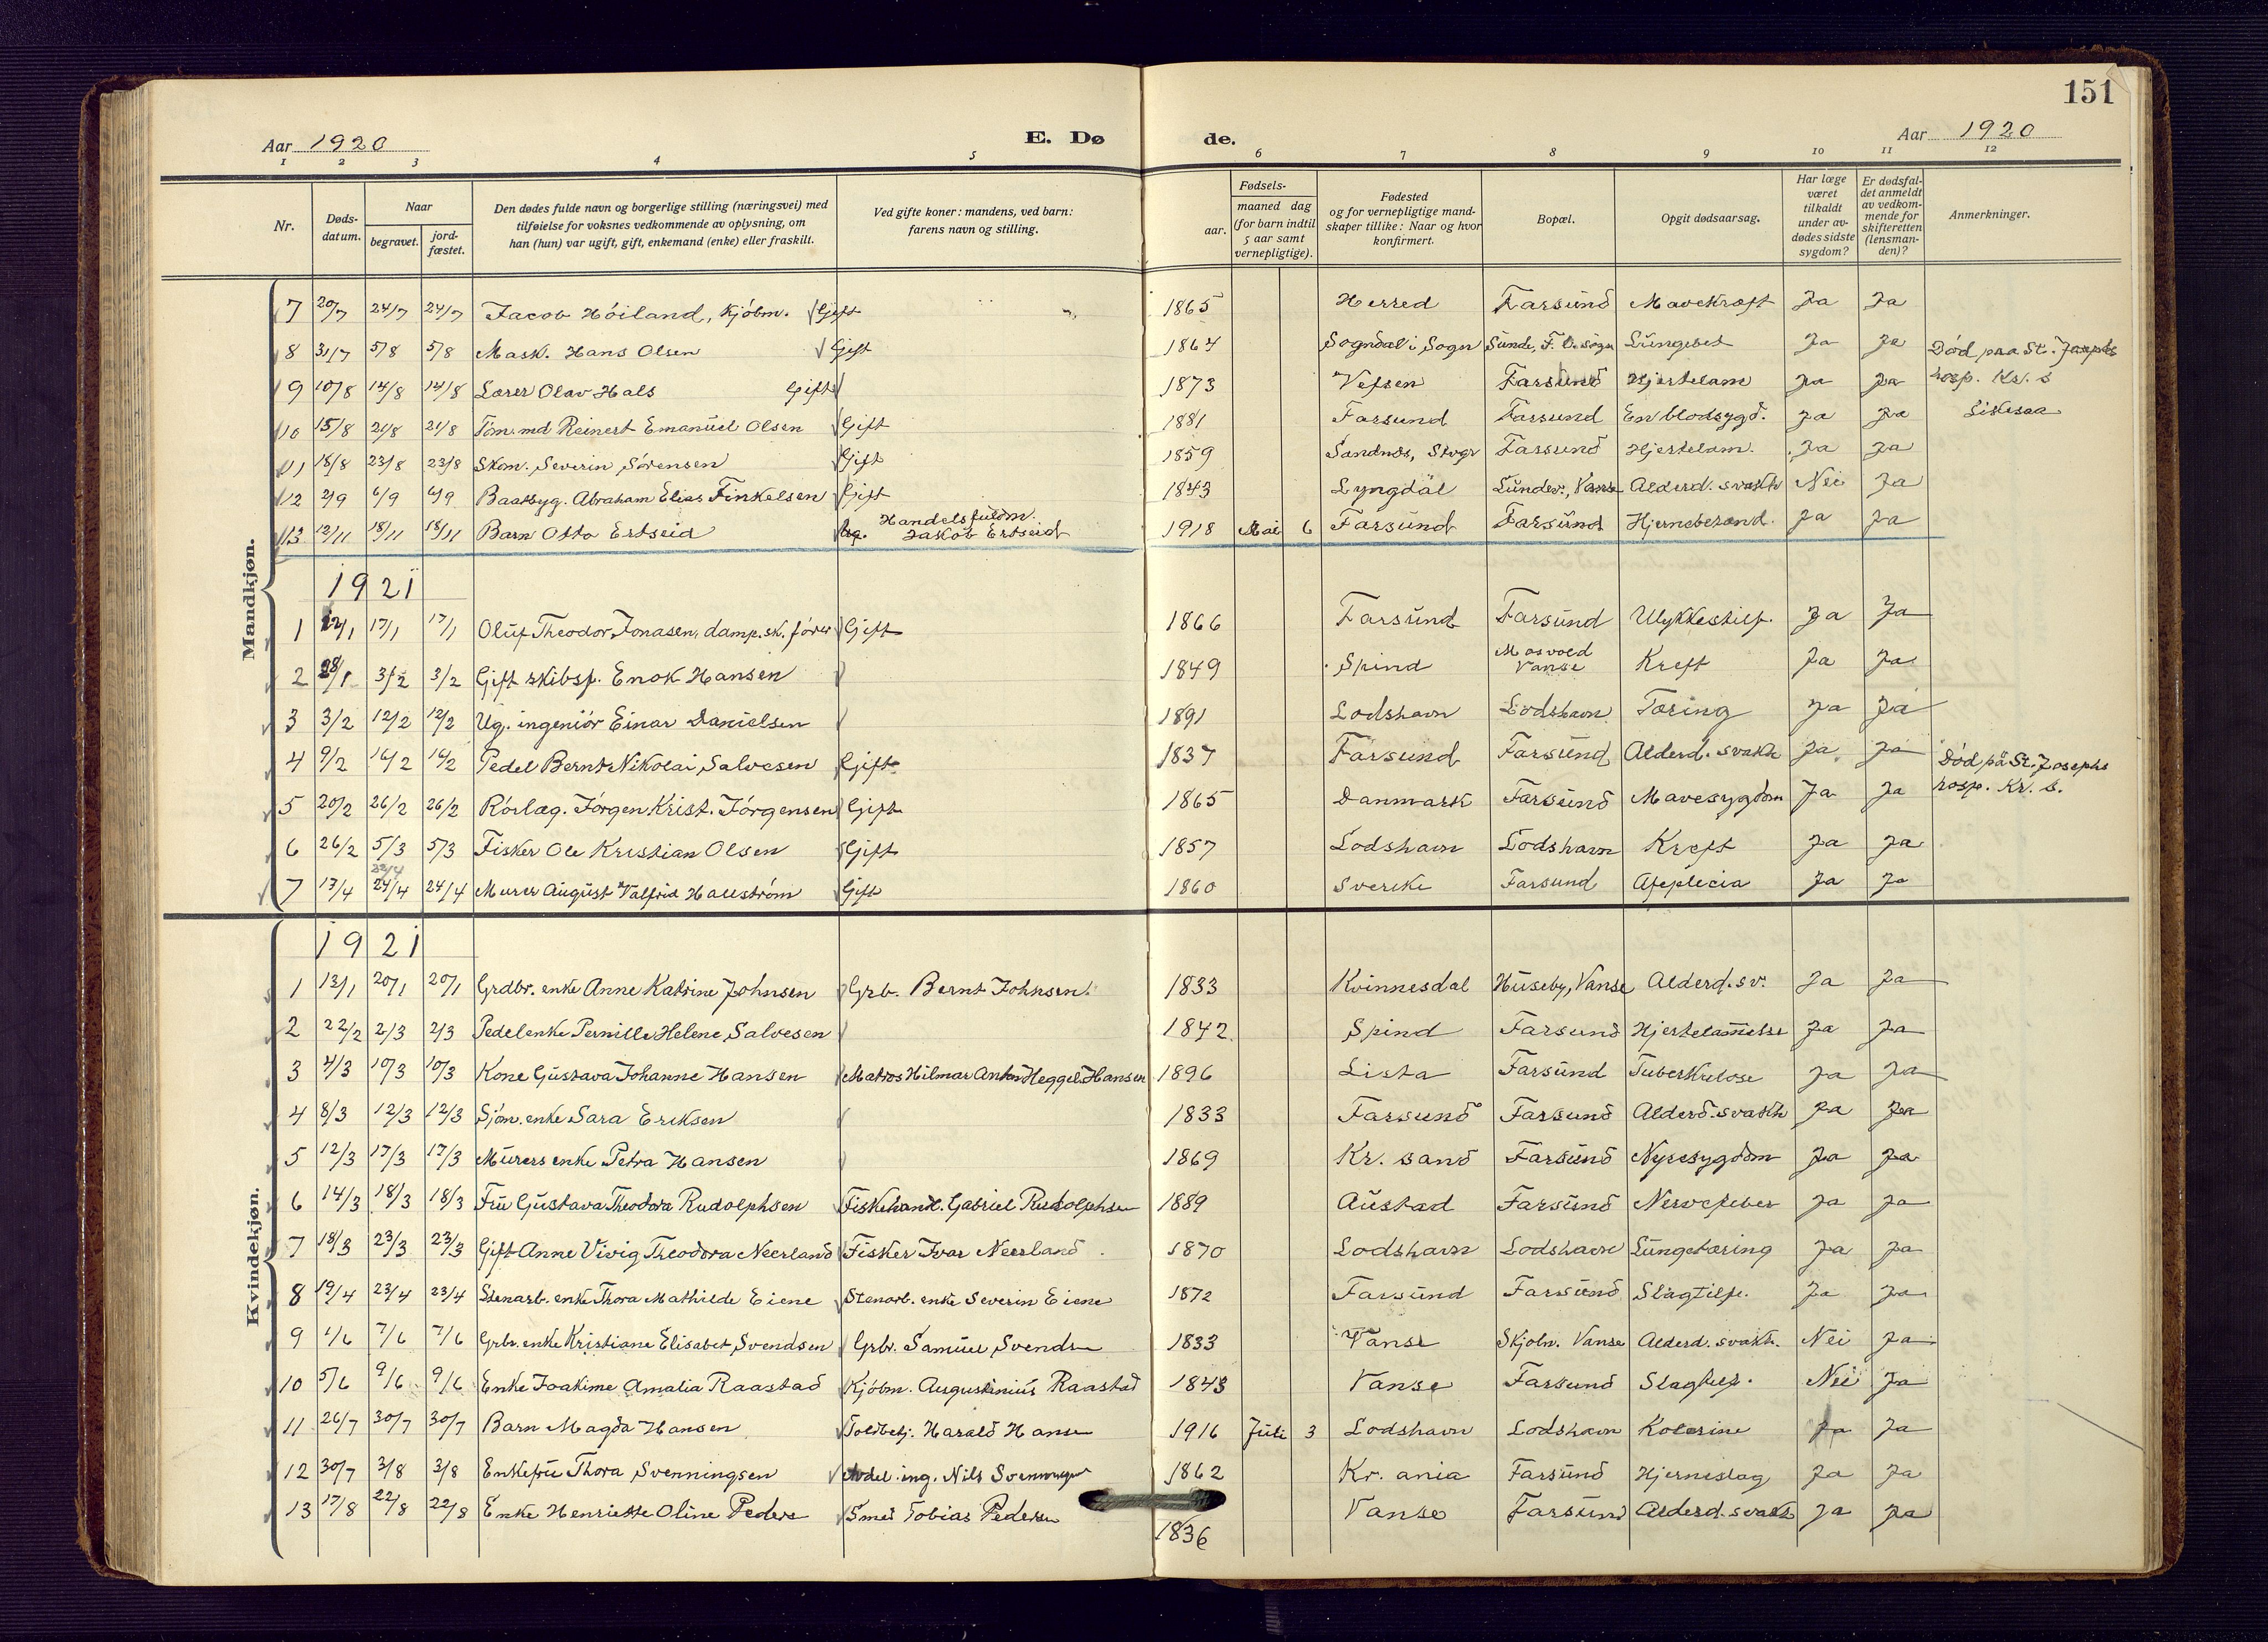 151
Aar 1920 E. Dø de. Aar 1920
1 2 3 4 5 6 7 8 9 10 11 12
Nr.
Døds-
datum.
Naar
begravet.
jord-
fæstet.
Den dødes fulde navn og borgerlige stilling (næringsvei) med
tilføielse for voksnes vedkommende av oplysning, om
han (hun) var ugift, gift, enkemand (enke) eller fraskilt.
Ved gifte koner: mandens, ved barn:
farens navn og stilling.
Fødsels-
aar.
maaned dag
(for barn indtil
5 aar samt
vernepligtige).
Fødested
og for vernepligtige mand-
skaper tillike: Naar og hvor
konfirmert.
Bopæl.
Opgit dødsaarsag.
Har læge
været
tilkaldt
under av-
dødes sidste
sygdom?
Er dødsfal-
det anmeldt
av vedkom-
mende for
skifteretten
(lensman-
den)?
Anmerkninger.
Mandkjøn.
7 20/7 24/7 24/7 Jacob Höiland, Kjöbm. Gift 1865 Herred Farsund Mavekræft Ja Ja
8 31/7 5/8 5/8 Mask. Hans Olsen Gift 1864 Sogndal i Sogn Sunde, F. Lungebet Ja Ja Död paa St. Josephs
9 10/8 14/8 14/8 Lærer Olav Hals Gift 1873 Vefsen Farsund Hjertelam Ja Ja hosp. Kr. s
10 15/8 21/8 21/8 Töm.md Reinert Emanuel Olsen Gift 1881 Farsund Farsund En blodsygd. Ja Ja
11 18/8 23/8 23/8 Skom. Severin Sörensen Gift 1859 Sandnes, Stvgr Farsund Hjertelam. Ja Ja
12 2/9 6/9 6/9 Baatbyg. Abraham Elias Finkelsen Gift 1843 Lyngdal Lunder, Vanse Alderd. svakh Nei Ja
13 12/11 18/11 18/11 Barn Otto Ertseid Handelsfuldm. Jakob Ertseid 1918 Mai 6 Farsund Farsund Hjernebetænd. Ja Ja
1921
1 12/1 17/1 17/1 Oluf Theodor Jonasen, damp.sk. förer Gift 1866 Farsund Farsund Ulykkestilf. Ja Ja
2 28/1 3/2 3/2 Gift skibsf. Enok Hansen 1849 Spind Mosvold Vanse Kreft Ja Ja
3 3/2 12/2 12/2 Ug. ingeniör Einar Danielsen 1891 Lodshavn Lodshavn Tæring Ja Ja
4 9/2 16/2 16/2 Pedel Bernt Nikolai Salvesen Gift 1837 Farsund Farsund Alderd. svakh Ja Ja
5 20/2 26/2 26/2 Rörlæg. Jörgen Krist. Jörgensen Gift 1865 Danmark Farsund Mavesygdom Ja Ja Död på St. Josephs hosp. Kr. s.
6 26/2 5/3 5/3 Fisker Ole Kristian Olsen Gift 1857 Lodshavn Lodshavn Kreft Ja Ja
7 17/4 24/4 24/4 Murer August Valfrid Hallström Gift 1860 Sverike Farsund Apeplecia Ja Ja
Kvindekjøn.
1921
1 13/1 20/1 20/1 Grdbr. enke Anne Katrine Johnsen Grb. Bernt Johnsen. 1833 Kvinnesdal Huseby, Vanse Alderd. sv. Ja Ja
2 22/2 2/3 2/3 Pedelenke Pernille Helene Salvesen 1842 Spind Farsund Hjertelammelse Ja Ja
3 4/3 10/3 10/3 Kone Gustava Johanne Hansen Matros Hilmar Anton Heggel. Hansen 1896 Lista Farsund Tuberkulose Ja Ja
4 8/3 12/3 12/3 Sjöm. enke Sara Eriksen 1833 Farsund Farsund Alderd. svakh Ja Ja
5 12/3 17/3 17/3 Murers enke Petra Hansen 1869 Kr. sand Farsund Nyresygdom Ja Ja
6 14/3 18/3 18/3 Fru Gustava Theodora Rudolphsen Fiskehandl. Gabriel Rudolphsen 1889 Austad Farsund Nervefeber Ja Ja
7 18/3 23/3 23/3 Gift Anne Vivig Theodora Neerland Fisker Ivar Neerland 1870 Lodshavn Lodshavn Lungetæring Ja Ja
8 19/4 23/4 23/4 Stenarb. enke Thora Mathilde Eiene Stenarb. enke Severin Eiene 1872 Farsund Farsund Slagtilf. Ja Ja
9 1/6 7/6 7/6 Grbr. enke Kristiane Elisabet Svendsen Grbr. Samuel Svendsen 1833 Vanse Skjoln. Vanse Alderd. svakh. Nei Ja
10 5/6 9/6 9/6 Enke Joakime Amalia Raastad Kjöbm. Augustinius Raastad 1843 Vanse Farsund Slagtilf. Nei Ja
11 26/7 30/7 30/7 Barn Magda Hansen Toldbetj. Harald Hansen 1916 Juli 3 Lodshavn Lodshavn Kolerine Ja Ja
12 30/7 3/8 3/8 Enkefru Thora Svenningsen Avdel. ing. Nils Svenningsen 1862 Kr. ania Farsund Hjerneslag Ja Ja
13 17/8 22/8 22/8 Enke Henriette Oline Peders Smed Tobias Pedersen 1836 Vanse Farsund Alderd. svakh Ja Ja